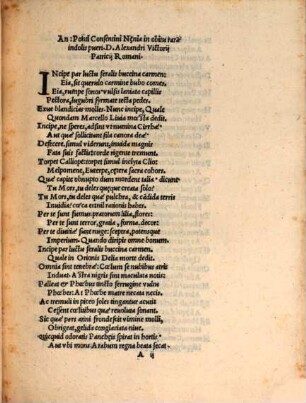 An: Pelusi Consentini Nęnia in obitu raræ
indolis pueri. D. Alexandri Victorij
Patricij Romani.
INcipe par luctu feralis buccina carmen:
Eia, sic querulo carmine bubo comes.
Eia, rumpe sonos vulsis laniata capillis
Pectora, lugubri firmate tecta pedes.
Exue blandicias molles. Nunc incipe, Quale
Quondam Marcello Liuia mœsta dedit.
Incipe, ne speres, adsint vt numina Cirrhæ
Aut quæ sollicitant fila canora deæ
Defecere, simul viderunt, inuida magnis
Fata suis fastis: corde rigente tremunt.
Torpet Calliope: torpet simul inclyta Clio:
Melpomene, Euterpe, cętera sacra cohors.
Quæ capite obnupto dum mordent talia dicunt:
Tu Mors, tu deles quęcunque creata solo?
Tu Mors, tu deles quæ pulchre, & cādida terris
Inuidia: cœca etenim rationis habes.
Per te sunt fumus: pratorum lilia, flores:
Per te sunt terror, gratia, forma, decor:
Per te diuitiæ sunt nugæ: sceptra, potensque
Imperium. Quando diripis omne bonum.
Incipe par luctu feralis buccina carmen:
Quale in Orionis Delia morte dedit.
Omnia sint tenebræ: Cœlum se nubibus atris
Induat. & Stra nigris sint maculata notis:
Palleat & Phœbus tincto ferrugine vultu
Phœbes: At Phœbe matre negata necis:
Ac tremuli in piceo soles tingantur aceruo
Cessent cœlitibus quæ reuoluta sonant.
Sic quæ pars anni frondescit vimine molli,
Obrigeat, gelida conglaciata niue.
Quicquid odoratis Panchęis spirat in hortis
Aut vbi mons Arabum regna beata secat
A ij